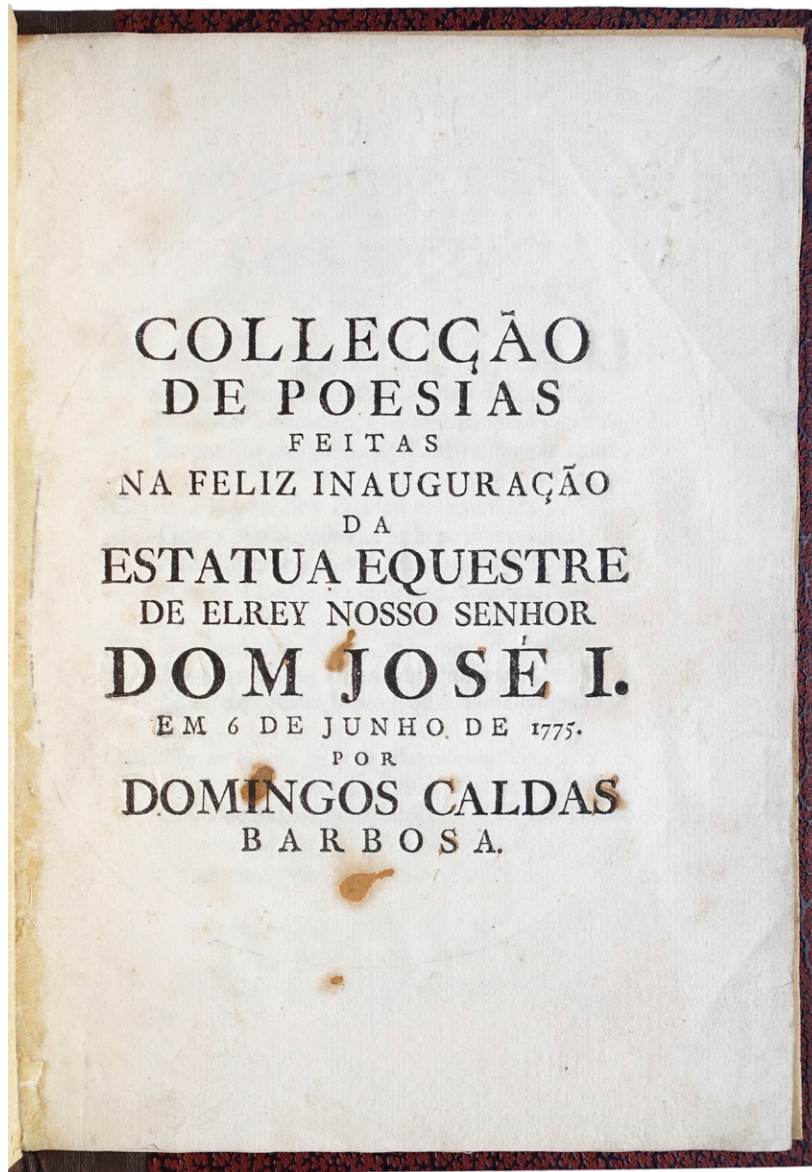 COLLECÇÃO
DE POESIAS
FEITAS
NA FELIZ INAUGURAÇÃO
DA
ESTATUA EQUESTRE
DE ELREY NOSSO SENHOR
DOM JOSÉ I.
EM 6 DE JUNHO DE 1775.
POR
DOMINGOS CALDAS
BARBOSA.